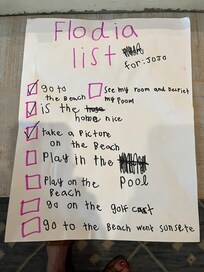 Flodia
list
for: JoJo
go to the Beach
See my room and Dacriet my Room
is the home nice
take a picture on the Beach
Play in the Pool
Play on the Beach
go on the golf cart
go to the Beach went sunsete